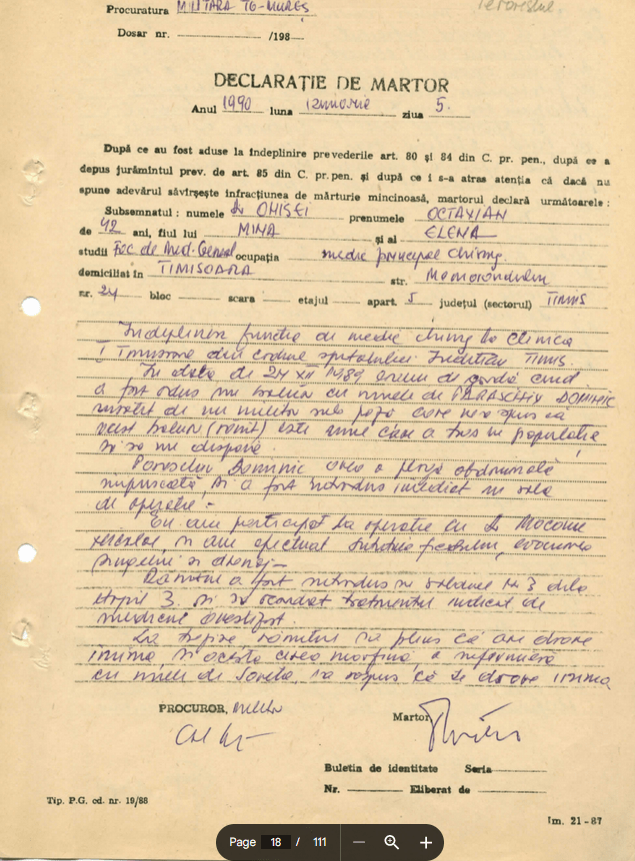 Procuratura MILITARA TG-MUREŞ
Teroristul
Dosar nr. /198
DECLARAŢIE DE MARTOR
Anul 1990 luna ianuarie ziua 5.
După ce au fost aduse la îndeplinire prevederile art. 80 şi 84 din C. pr. pen., după ce a
depus jurămîntul prev. de art. 85 din C. pr. pen. şi după ce i s-a atras atenţia că dacă nu
spune adevărul săvîrşeşte infracţiunea de mărturie mincinoasă, martorul declară următoarele :
Subsemnatul : numele Dr GHISEI prenumele OCTAVIAN
de 42 ani, fiul lui MINA şi al ELENA
studii Fac de Med. General ocupaţia medic principal chirurg.
domiciliat în TIMISOARA str. Memorandului
nr. 24 bloc scara etajul apart. 5 judeţul (sector) TIMIS
Indeplinesc functia de medic chirurg la Clinica
I Timisoara din cadrul spitalului Judetean TIMIS
In data de 24 XII 1989 eram de garda cind
a fost adus un bolnav cu numele de PARASCHIV DOMINIC
insotit de un militar sub paza care ne-a spus ca
acest bolnav (ranit) este unul care a tras in populatie
si sa nu dispara.
Paraschiv Dominic avea o plaga abdominala
impuscata, si a fost introdus imediat in sala
de operatie.
Eu am participat la operatie cu Dr
si am efectuat sutura evacuarea
singelui si drenaj
Ranitul a fost introdus in salonul nr. 3 dela
etajul 3 si s-a acordat tratamentul indicat de
medicul anestezist.
La trezire ranitul s-a plins ca are
inima si acesta cerea morfina, o infirmiera
cu numele de i-a raspuns ca inima
PROCUROR, militar Martor,
Buletin de identitate Seria
Nr. Eliberat de
Tip. P.G. cd. nr. 19/88
Im. 21-87
Page 18 / 111